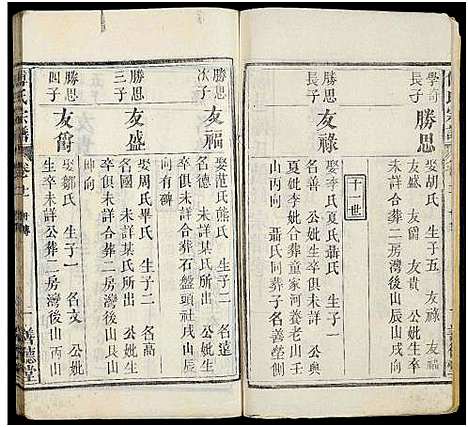 學奇
長子
勝思
娶胡氏 生子五 友祿 友福
友盛 友爵 友貴 公妣生卒俱
未詳合葬二房灣後山辰山戌向
十一世
勝思
長子
友祿
娶李氏夏氏聶氏 生子一
名善 公妣生卒俱未詳 公與
夏妣李妣合葬童家河莊山對面
山丙向 聶氏同葬子名善塋側
勝思
次子
友福
娶范氏熊氏 生子二 名遠
名德 未詳某氏所出 公妣生
卒未詳合葬石盤頭社山戌山辰
向有碑
勝思
三子
友盛
娶周氏畢氏 生子二 名高
名國 未詳某氏所出 公妣生
卒未詳合葬二房灣後山艮山
坤向
勝思
四子
友爵
娶鄒氏 生子一 名文 公妣
生卒未詳公葬二房灣後山丙山
傅氏宗譜
善德堂